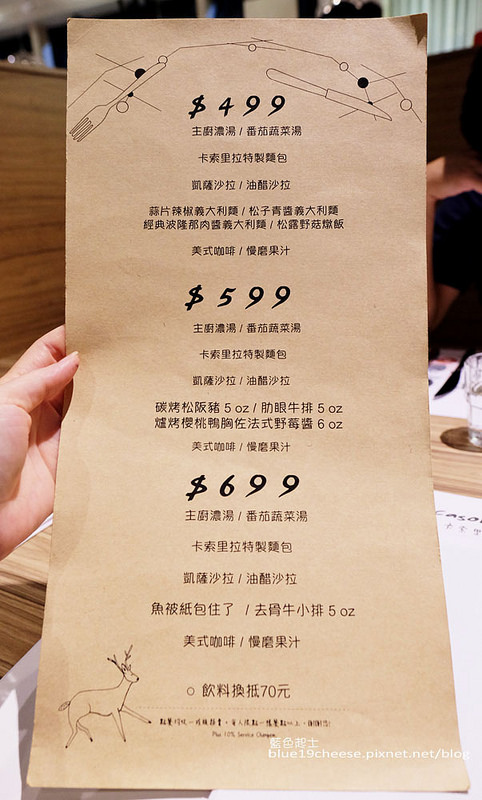 $499
主廚濃湯 / 番茄蔬菜湯
卡索里拉特製麵包
凱薩沙拉 / 油醋沙拉
蒜片辣椒義大利麵 / 松子青醬義大利麵
經典波隆那肉醬義大利麵 / 松露野菇燉飯
美式咖啡 / 慢磨果汁
$599
主廚濃湯 / 番茄蔬菜湯
卡索里拉特製麵包
凱薩沙拉 / 油醋沙拉
碳烤松阪豬 5 oz / 肋眼牛排 5 oz
爐烤櫻桃鴨胸佐法式野莓醬 6 oz
美式咖啡 / 慢磨果汁
$699
主廚濃湯 / 番茄蔬菜湯
卡索里拉特製麵包
凱薩沙拉 / 油醋沙拉
魚被紙包住了 / 去骨牛小排 5 oz
美式咖啡 / 慢磨果汁
○ 飲料換抵70元
Plus 10% Service Charge
藍色起士
blue19cheese.pixnet.net/blog